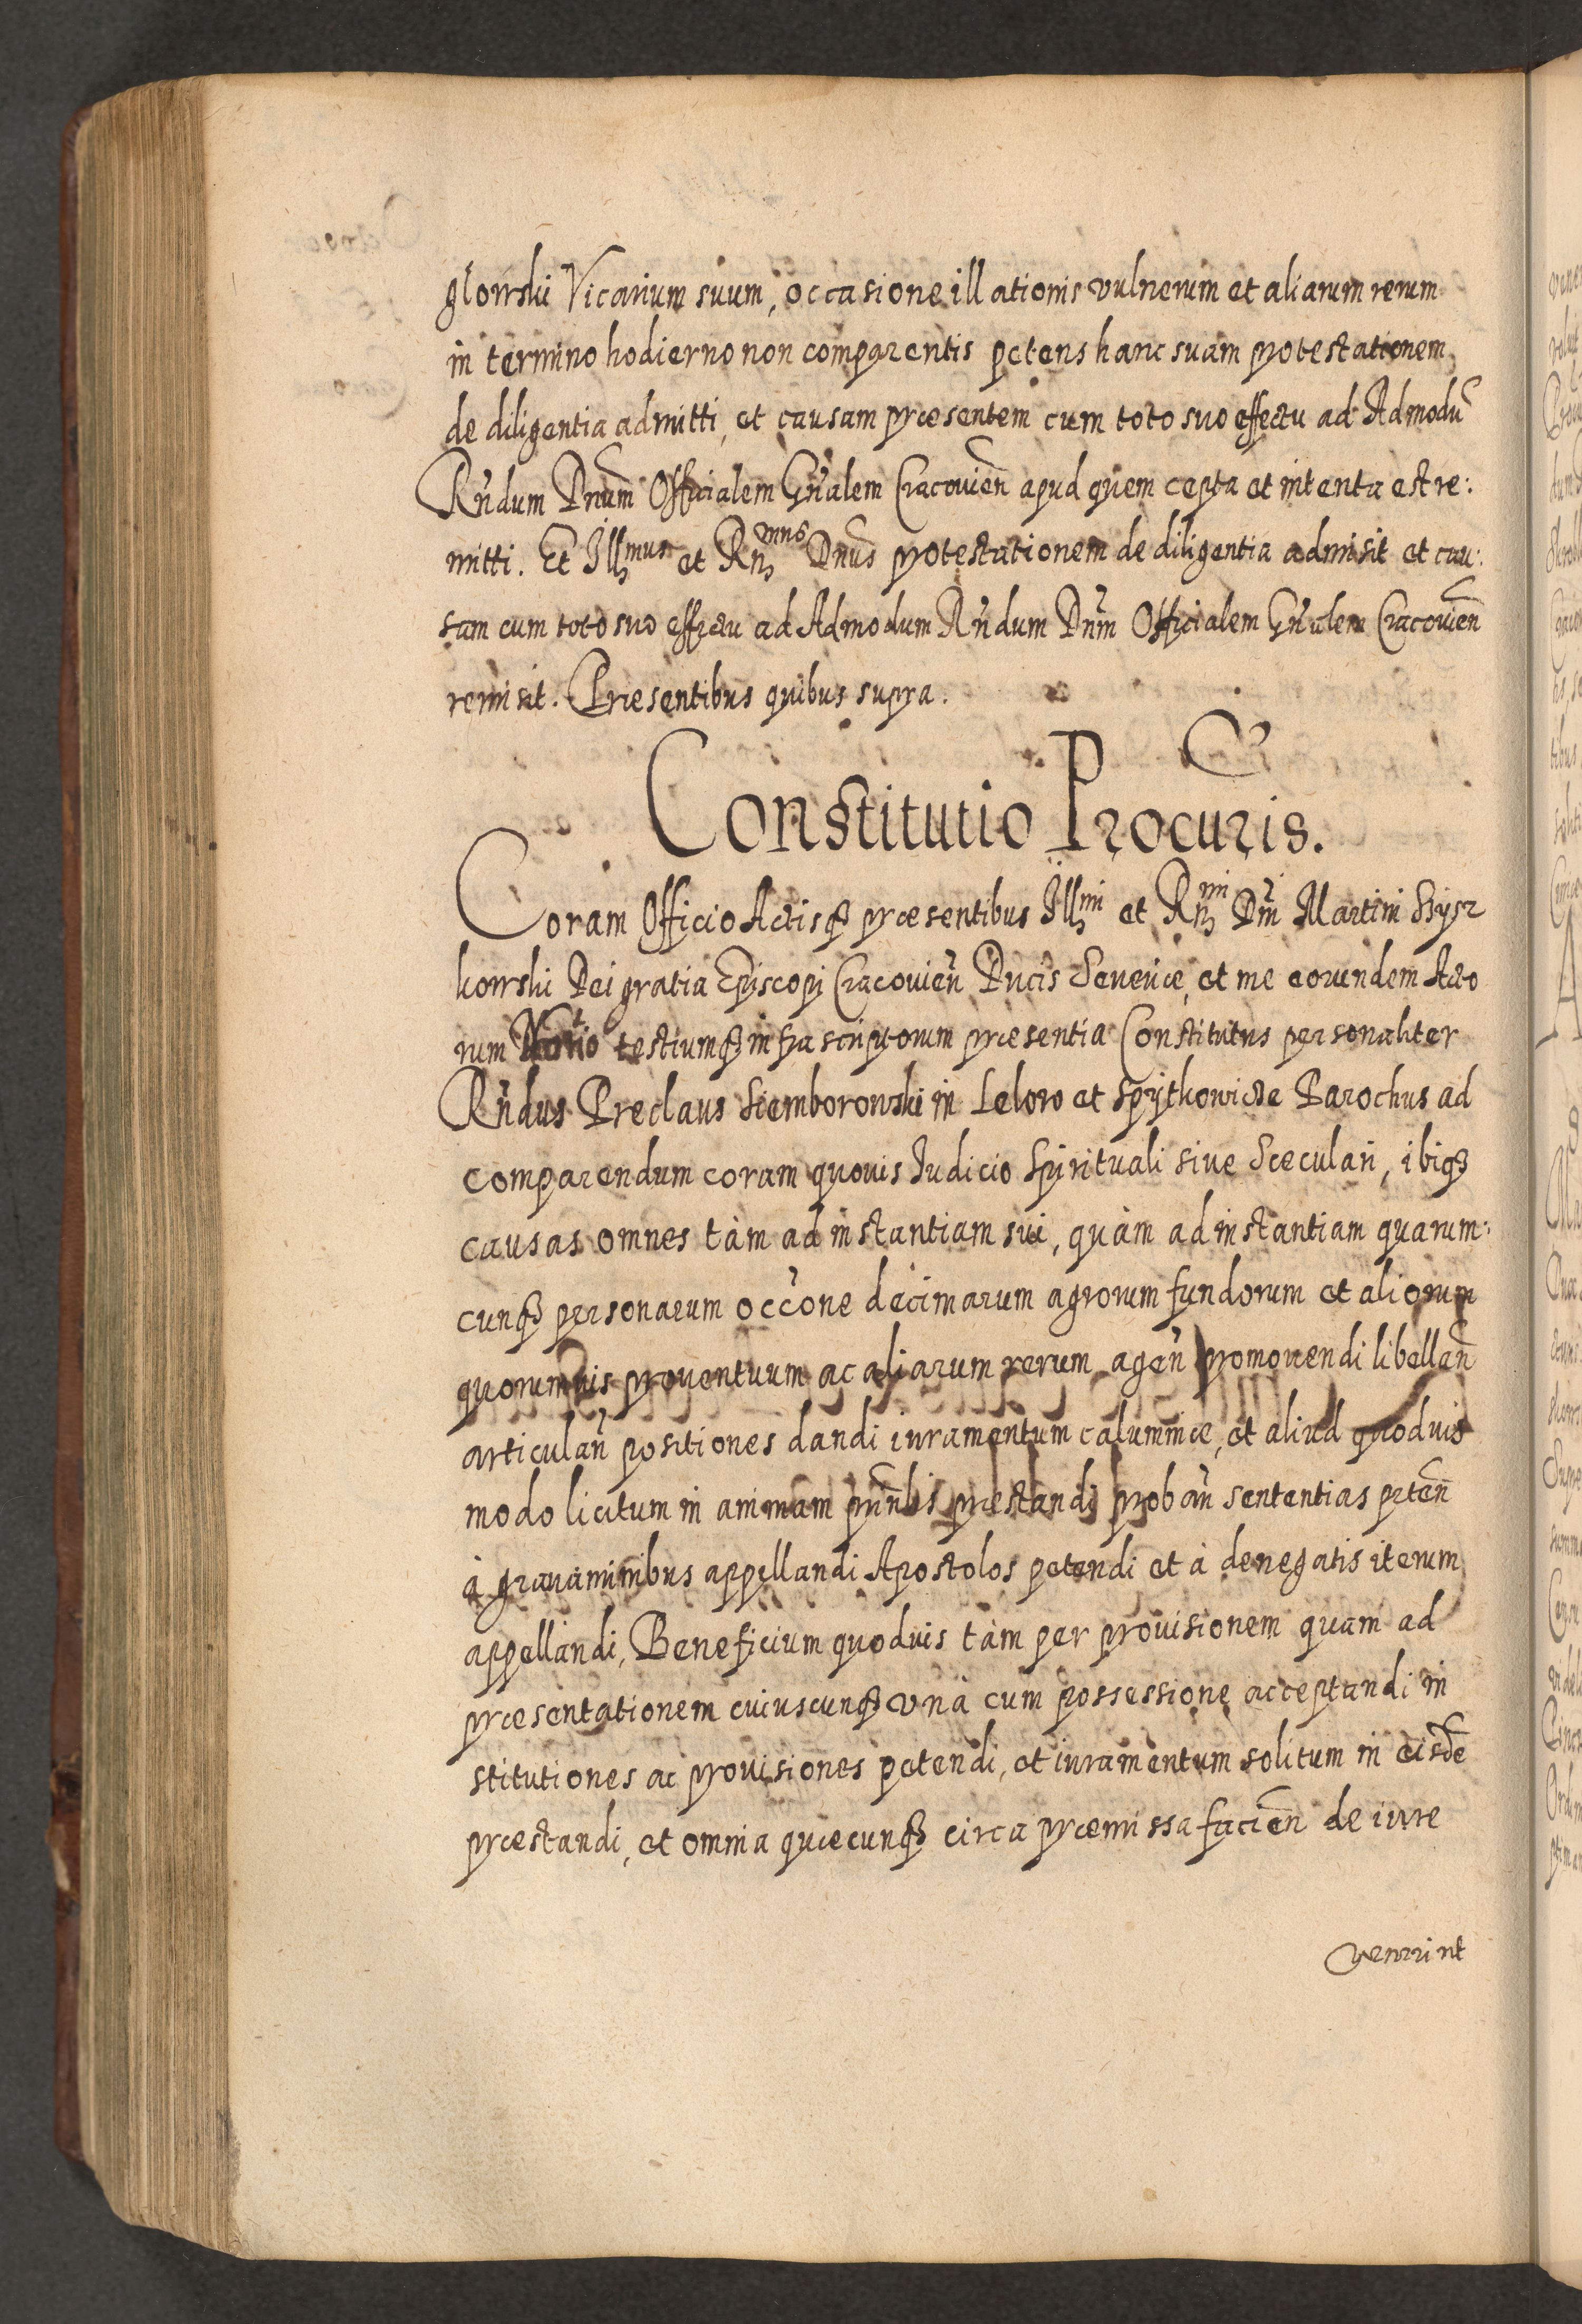 glowski Vicarium suum, occasione illationis vulnerum et aliarum rerum
in termino hodierno non comparentis petens hanc suam protestationem
de diligentia admitti, et causam præsentem cum toto suo effectu ad Admodū
Rñdum Dnum Officialem Gñalem Cracovieñ apud quem cepta et intenta est re:
mitti. Et Illmus et Rnmus Dnus protestationem de diligentia admisit et cau:
sam cum toto suo effectu ad Admodum Rñdum Dñm Officialem Gñalem Cracovieñ
remisit. Præsentibus quibus supra.
Constitutio Procuris.
Coram Officio Actisq præsentibus Illmi et Rnmi Dñi Martini Szysz
kowski Dei gratia Episcopi Cracovieñ Ducis Severiæ, et me eorundem Acto
rum Notio testiumq infrascriptorum præsentia Constitutus personaliter
Rñdus Preclaus Siemborowski in Lelow et Spytkowicze Parochus ad
comparendum coram quovis Iudicio Spirituali sive Sæculari, ibiq
causas omnes tàm ad instantiam sui, quàm ad instantiam quarum:
cunq personarum occõne decimarum agrorum fundorum et aliorum
quorumvis proventuum ac aliarum rerum ageñ promovendi libellañ
articulañ positiones dandi iuramentum calumniæ, et aliud quodvis
modo licitum in animam prinñlis præstandi probañ sententias peteñ
à gravaminibus appellandi Apostolos petendi et à denegatis iterum
appellandi, Beneficium quodvis tàm per provisionem quam ad
præsentationem cuiuscunq unà cum possessione acceptandi in
stitutiones ac provisiones petendi, et iuramentum solitum in eisdē
præstandi, et omnia quæcunq circa præmissa facieñ de iure
venerint